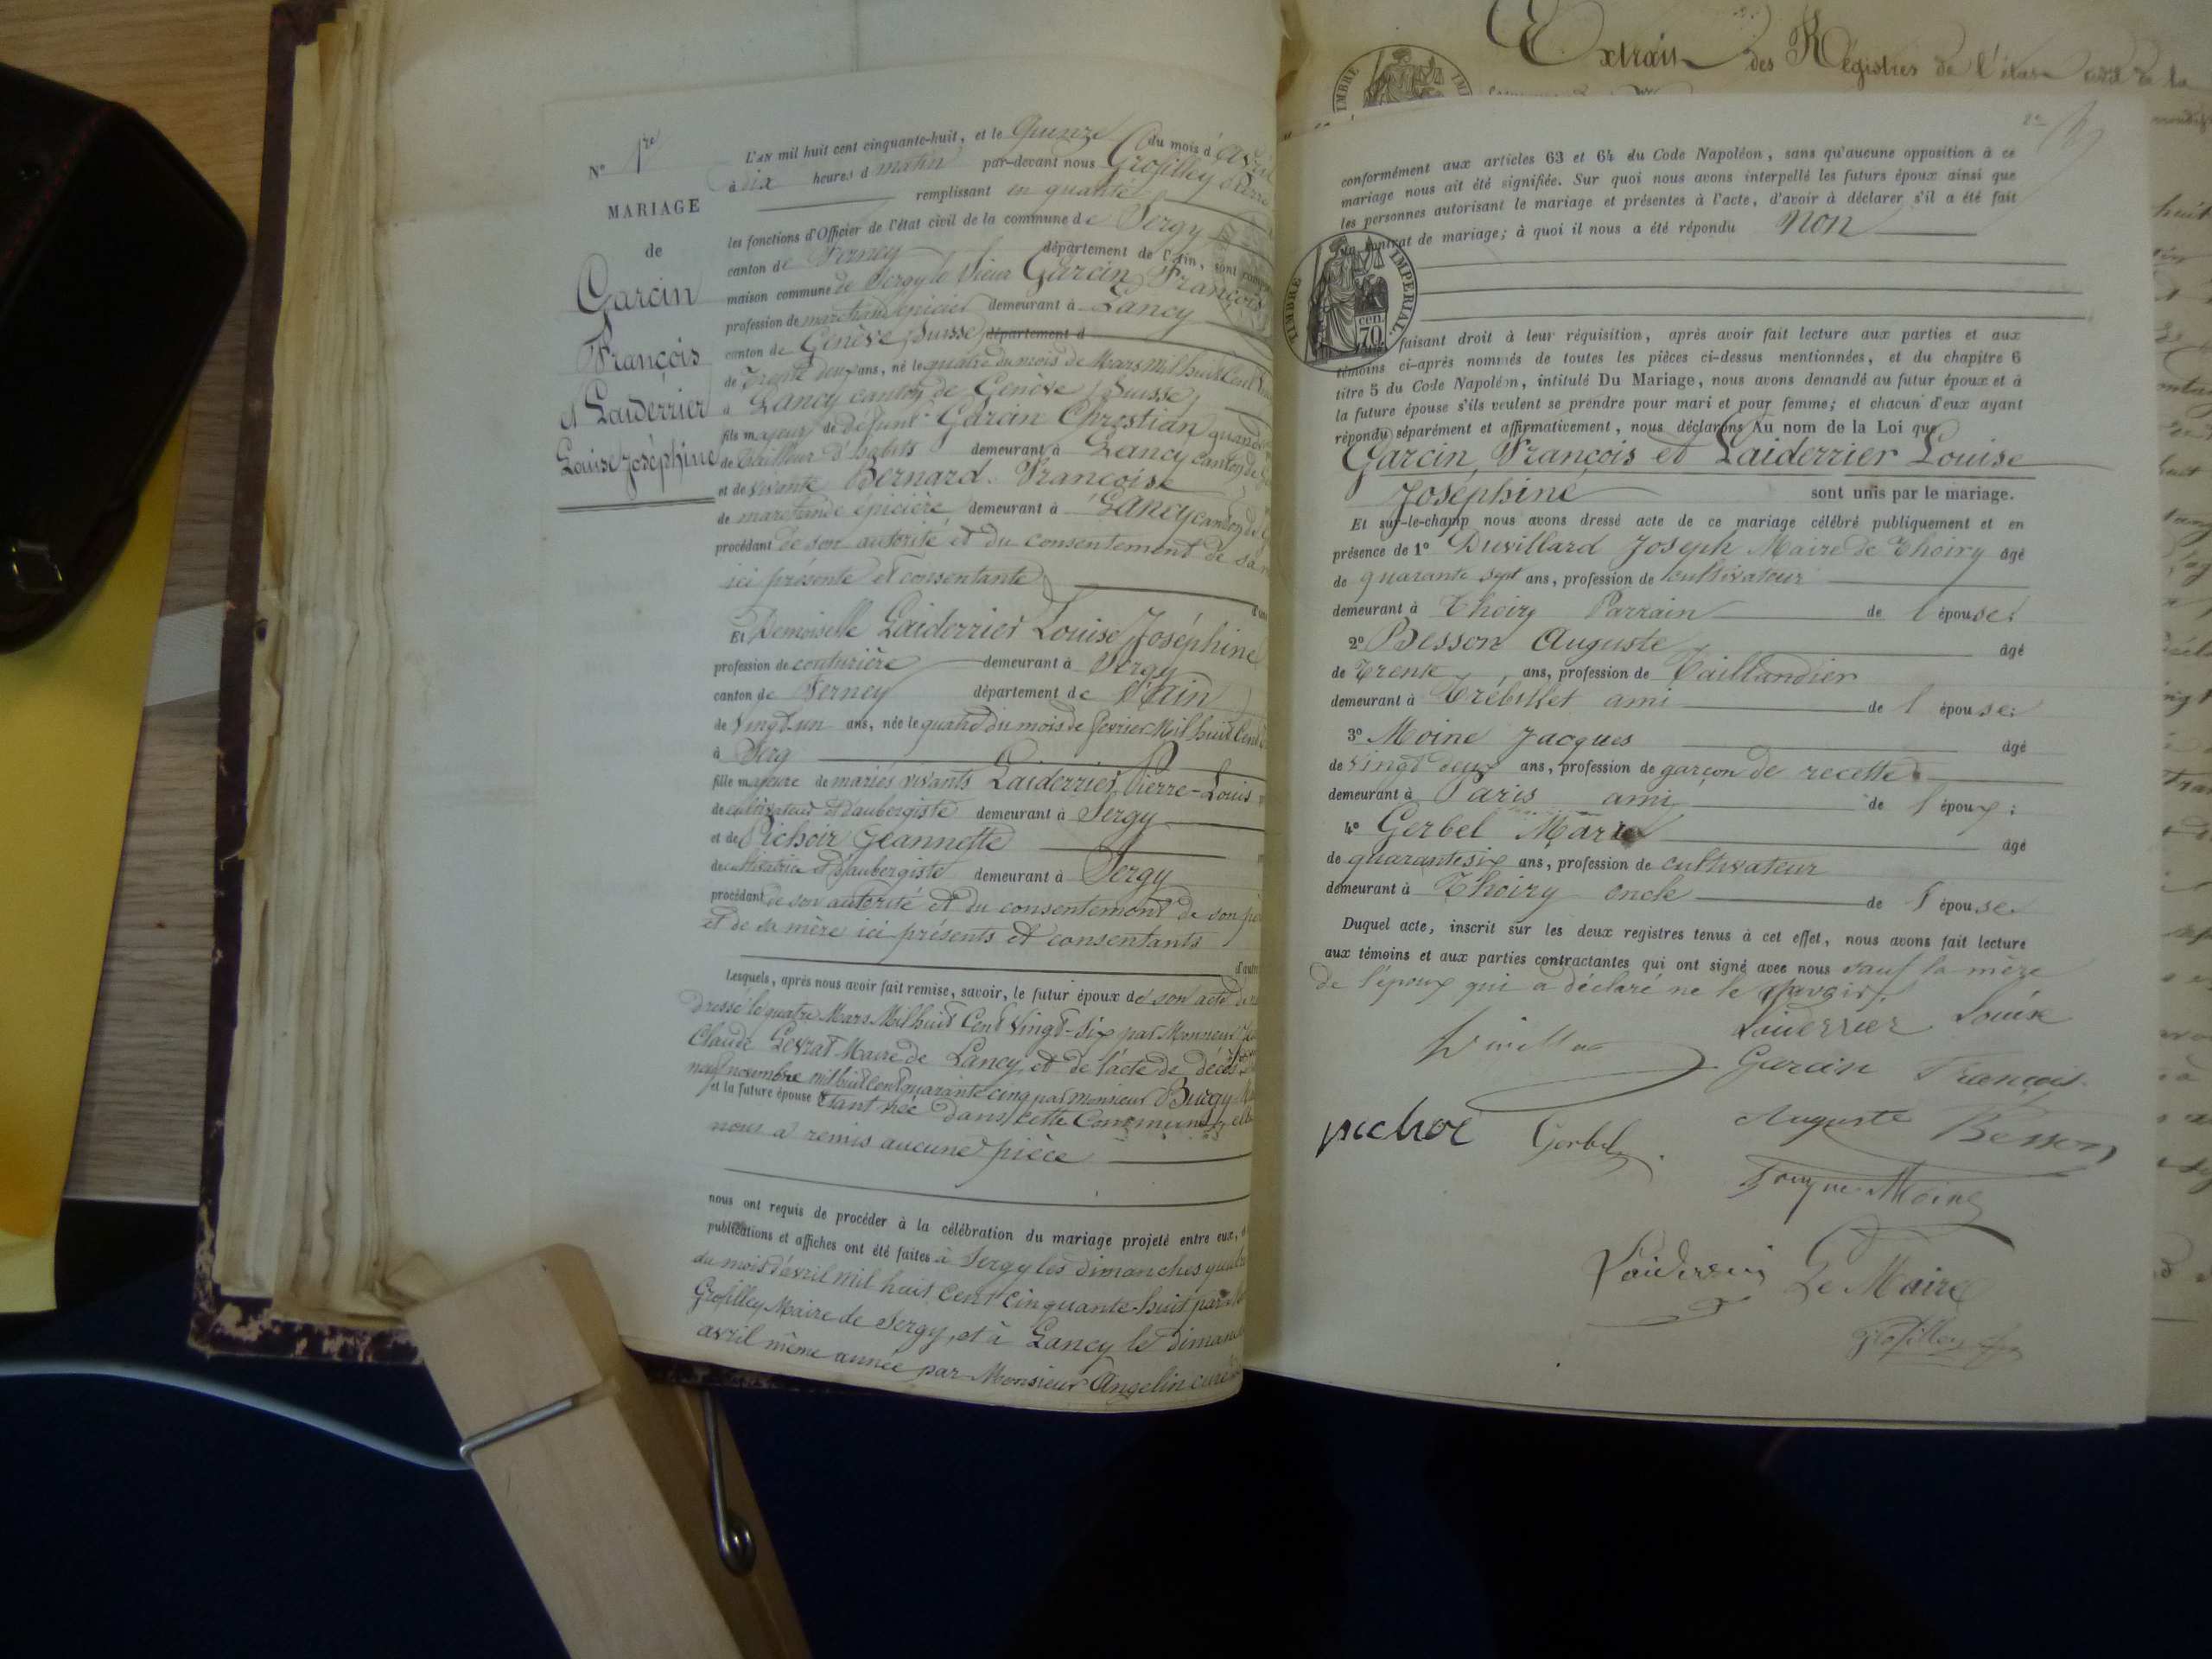 N° 1re
MARIAGE
de
Garcin
François
et Laiderrier
Louise Joséphine
L'an mil huit cent cinquante-huit, et le Quinze du mois d'avril
à dix heures d matin par-devant nous Grosfilley Pierre
remplissant en quantité
les fonctions d'Officier de l'état civil de la commune de Sergy
canton de Ferney département de l'Ain, sont comparus
maison commune de Sergy le Sieur Garcin François
profession de marchand épicier demeurant à Lancy
canton de Genève, Suisse, département d
de Trente deux ans, né le quatre du mois de Mars mil huit Cent
à Lancy canton de Genève (Suisse)
fils majeur de défunt Garcin Chrestian quand
de tailleur d'habits demeurant à Lancy canton de
et de vivante Bernard Françoise
de marchande épicière demeurant à Lancy canton de
procédant de son autorité et du consentement de sa
ici présente et consentante
Et Demoiselle Laiderrier Louise Joséphine
profession de couturière demeurant à Sergy
canton de Ferney département de l'Ain
de vingt-un ans, née le quatre du mois de février Mil huit Cent
à Serg
fille majeure de mariés vivants Laiderrier Pierre-Louis
de cultivateur et d'aubergiste demeurant à Sergy
et de Pichoir Jeannette
de cultivatrice et d'aubergiste demeurant à Sergy
procédant de son autorité et du consentement de son
et de sa mère ici présents et consentants
Lesquels, après nous avoir fait remise, savoir, le futur époux de son acte de
dressé le quatre Mars Mil huit Cent Vingt-six par Monsieur
Claude Gevrat Maire de Lancy, et de l'acte de décès
neuf novembre mil huit cent quarante cinq par monsieur Burgy
et la future épouse Etant née dans cette Commune, elle
nous a remis aucune pièce
nous ont requis de procéder à la célébration du mariage projeté entre eux,
publications et affiches ont été faites à Sergy les dimanches quatre
du mois d'avril mil huit Cent cinquante-huit par
Grosfilley Maire de Sergy, et à Lancy le dimanche
avril même année par Monsieur Angelin curé
Extrait des Régistres de l'état civil de la
conformément aux articles 63 et 64 du Code Napoléon, sans qu'aucune opposition à ce
mariage nous ait été signifiée. Sur quoi nous avons interpellé les futurs époux ainsi que
les personnes autorisant le mariage et présentes à l'acte, d'avoir à déclarer s'il a été fait
un contrat de mariage; à quoi il nous a été répondu non
TIMBRE IMPERIAL.
70 cen.
faisant droit à leur réquisition, après avoir fait lecture aux parties et aux
témoins ci-après nommés de toutes les pièces ci-dessus mentionnées, et du chapitre 6
titre 5 du Code Napoléon, intitulé Du Mariage, nous avons demandé au futur époux et à
la future épouse s'ils veulent se prendre pour mari et pour femme; et chacun d'eux ayant
répondu séparément et affirmativement, nous déclarons Au nom de la Loi que
Garcin, François et Laiderrier Louise
Joséphine sont unis par le mariage.
Et sur-le-champ nous avons dressé acte de ce mariage célébré publiquement et en
présence de 1° Duvillard Joseph Maire de Thoiry âgé
de quarante sept ans, profession de cultivateur
demeurant à Thoiry Parrain de l épouse;
2° Besson Auguste âgé
de Trente ans, profession de Taillandier
demeurant à Trébillet ami de l épouse;
3° Moine Jacques âgé
de vingt deux ans, profession de garçon de recette
demeurant à Paris ami de l époux;
4° Gerbel Marie âgé
de quarante six ans, profession de cultivateur
demeurant à Thoiry oncle de l épouse.
Duquel acte, inscrit sur les deux registres tenus à cet effet, nous avons fait lecture
aux témoins et aux parties contractantes qui ont signé avec nous sauf la mère
de l'époux qui a déclaré ne le savoir.
Laiderrier Louise
Garcin François
pichoi Gerbel Auguste Besson
Jacques Moine
Laiderrier Le Maire
Grosfilley